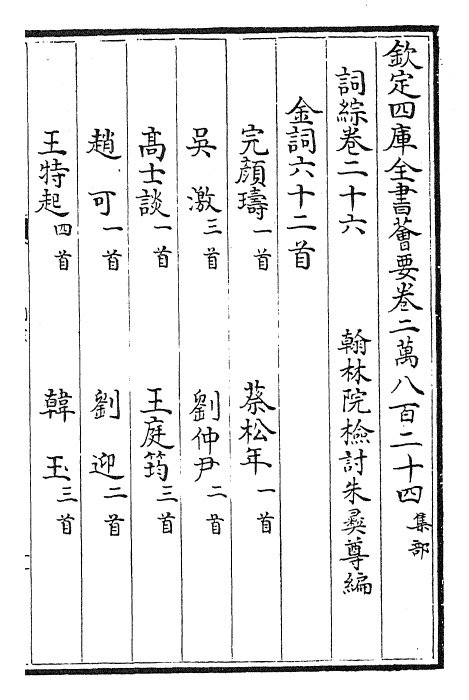 欽定四庫全書薈要卷二萬八百二十四集部
詞綜卷二十六　翰林院檢討朱彞尊編
金詞六十二首
完顏璹一首　蔡松年一首
吳激三首　劉仲尹二首
高士談一首　王庭筠三首
趙可一首　劉迎二首
王特起四首　韓玉三首